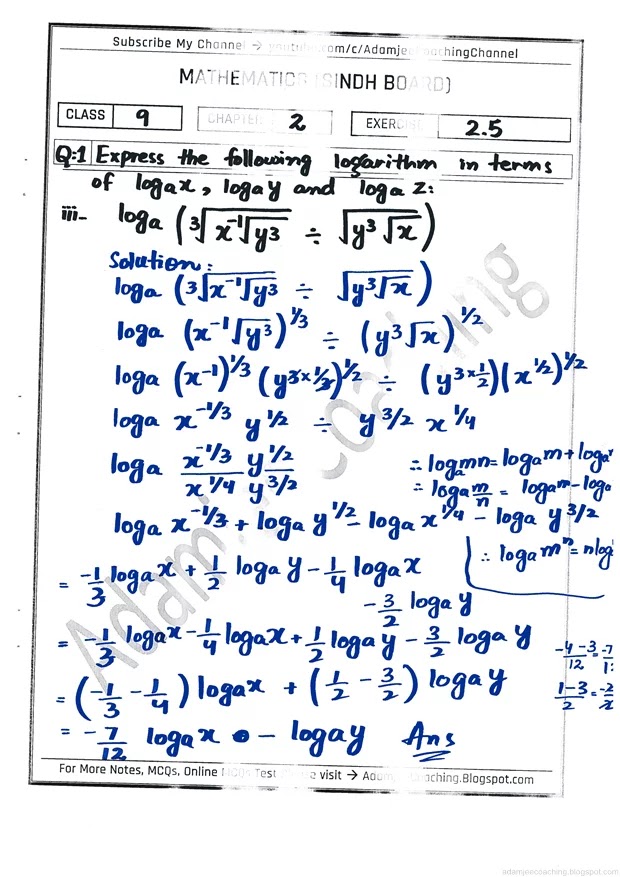 Subscribe My Channel → youtube.com/c/AdamjeeCoachingChannel
MATHEMATICS (SINDH BOARD)
CLASS 9 CHAPTER 2 EXERCISE 2.5
Q:1 Express the following logarithm in terms
of logₐx, logₐy and logₐz:
iii- logₐ (³√(x⁻¹√y³) ÷ √(y³√x))
Solution:
logₐ (³√(x⁻¹√y³) ÷ √(y³√x))
logₐ (x⁻¹√y³)^1/3 ÷ (y³√x)^1/2
logₐ (x⁻¹)^1/3 (y^3×1/3)^1/2 ÷ (y^3×1/2)(x^1/2)^1/2
logₐ x^-1/3 y^1/2 ÷ y^3/2 x^1/4
logₐ (x^-1/3 y^1/2)/(x^1/4 y^3/2) ∴ logₐmn = logₐm + logₐ
∴ logₐ m/n = logₐm - logₐ
logₐ x^-1/3 + logₐ y^1/2 - logₐ x^1/4 - logₐ y^3/2
∴ logₐ mⁿ = n log
= -1/3 logₐx + 1/2 logₐy - 1/4 logₐx
- 3/2 logₐy
= -1/3 logₐx - 1/4 logₐx + 1/2 logₐy - 3/2 logₐy
-4-3/12 = -7/1
= (-1/3 - 1/4) logₐx + (1/2 - 3/2) logₐy
1-3/2 = -2/2
= -7/12 logₐx - logₐy Ans
For More Notes, MCQs, Online MCQs Test Please visit → Adamjeecoaching.Blogspot.com
Adamjee Coaching
adamjeecoaching.blogspot.com